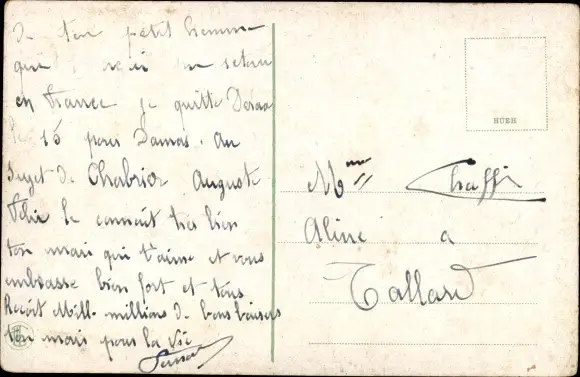 ton petit homme
que
en France je quitte
le 15 pour Damas. Au
Sujet de Chabrier Auguste
Félix le connait très bien
ton mari qui t'aime et vous
embrasse bien fort et tous
Reçoit Mill. millions de bons baisers
ton mari pour la vie
HUEH
Mme Chaffi
Aline a
Tallard